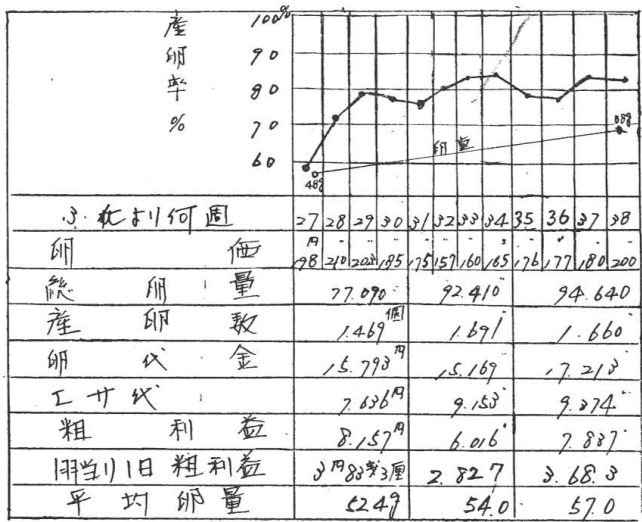 産卵率%
100%
90
80
70
60
48g
卵重
68g
ふ化より何週 27 28 29 30 31 32 33 34 35 36 37 38
卵価 198円 210 203 185 175 157 160 165 176 177 180 200
総卵量 77.090 92.410 94.640
産卵数 1.469個 1.691 1.660
卵代金 15.793円 15.169 17.213
エサ代 7.636円 9.153 9.374
粗利益 8.157円 6.016 7.837
1羽当り1日粗利益 3円83銭3厘 2.827 3.68.3
平均卵量 52.4g 54.0 57.0